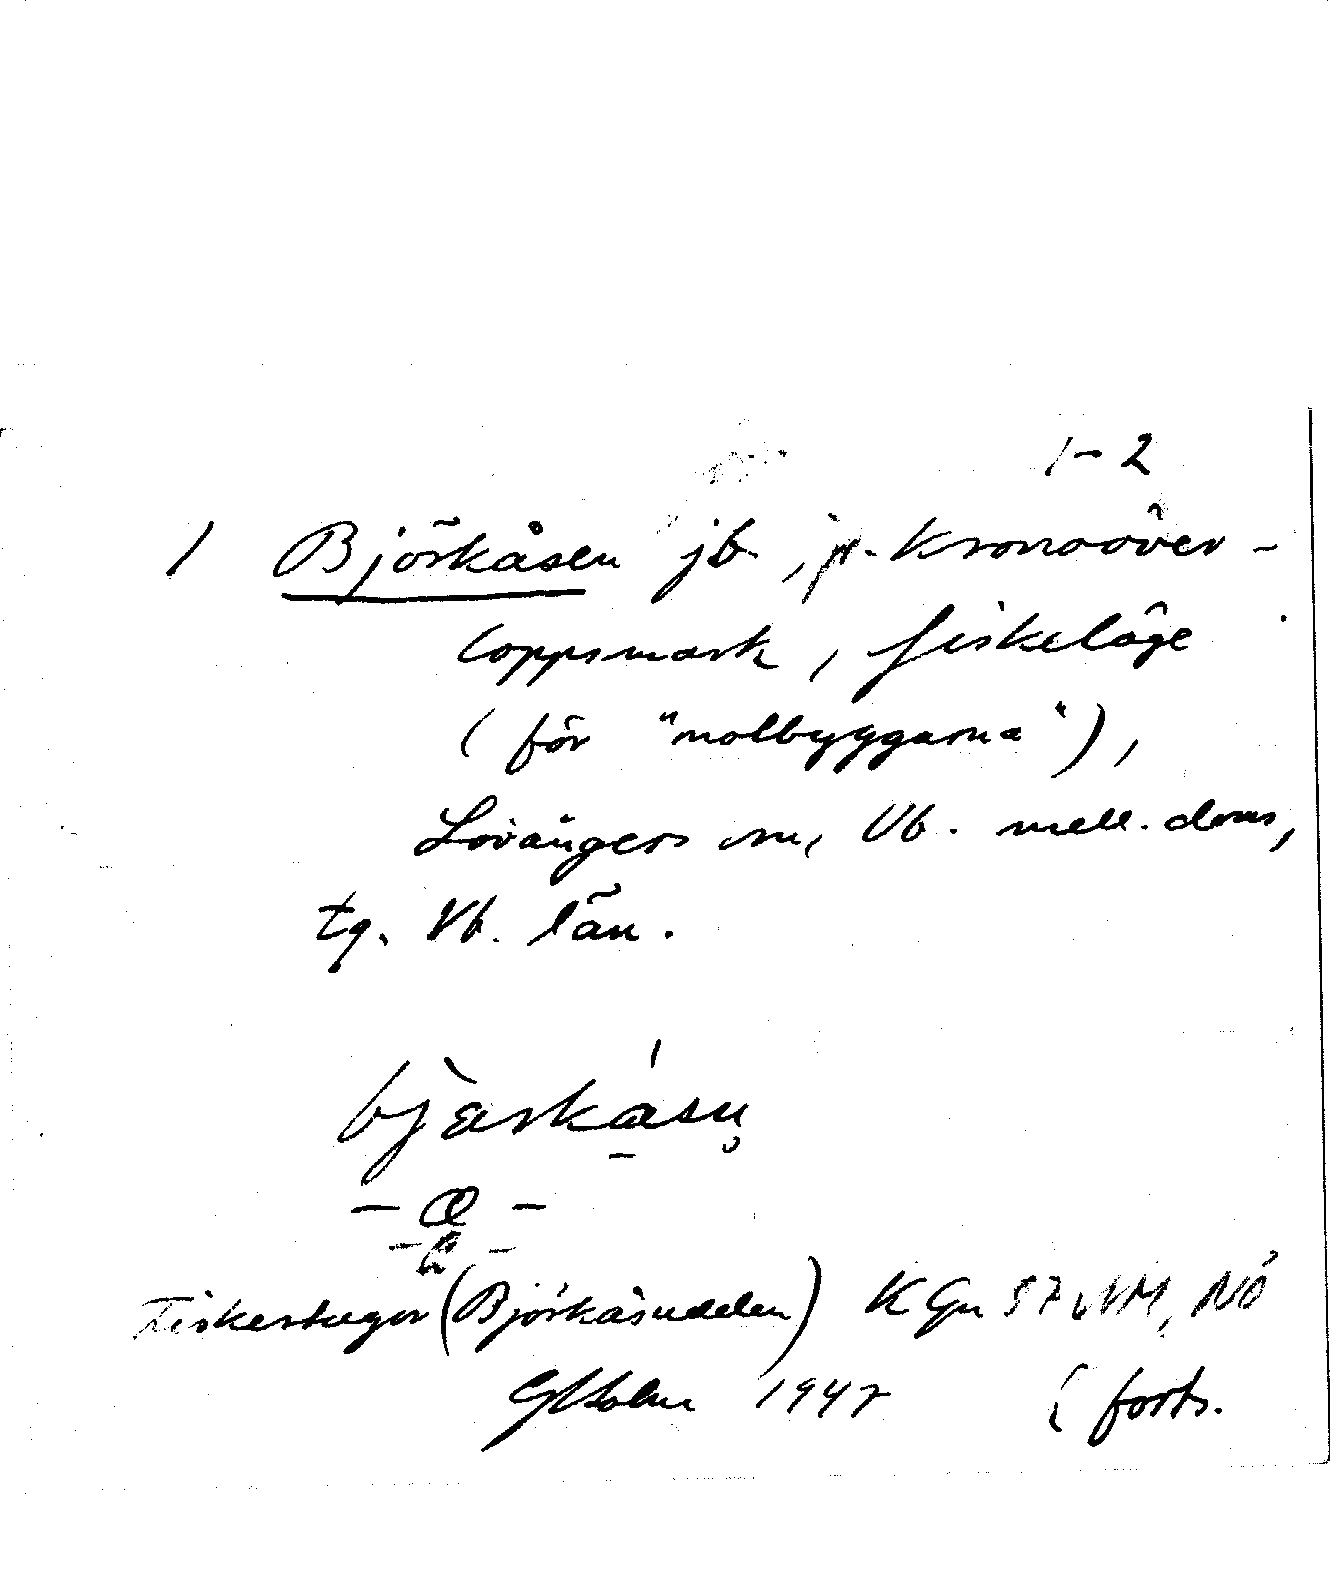 1-2
1 Björkåsen jb, p. Kronoöver-
loppsmark, fiskeläge
(för "nolbyggarna"),
Lövångers sn, Vb. mell. doms,
tg. Vb. län.
bjärkåsn̥
- œ -
Fiskestugor (Björkåsudden) KGu 57 NM, NÖ
GHolm 1947 ( forts.